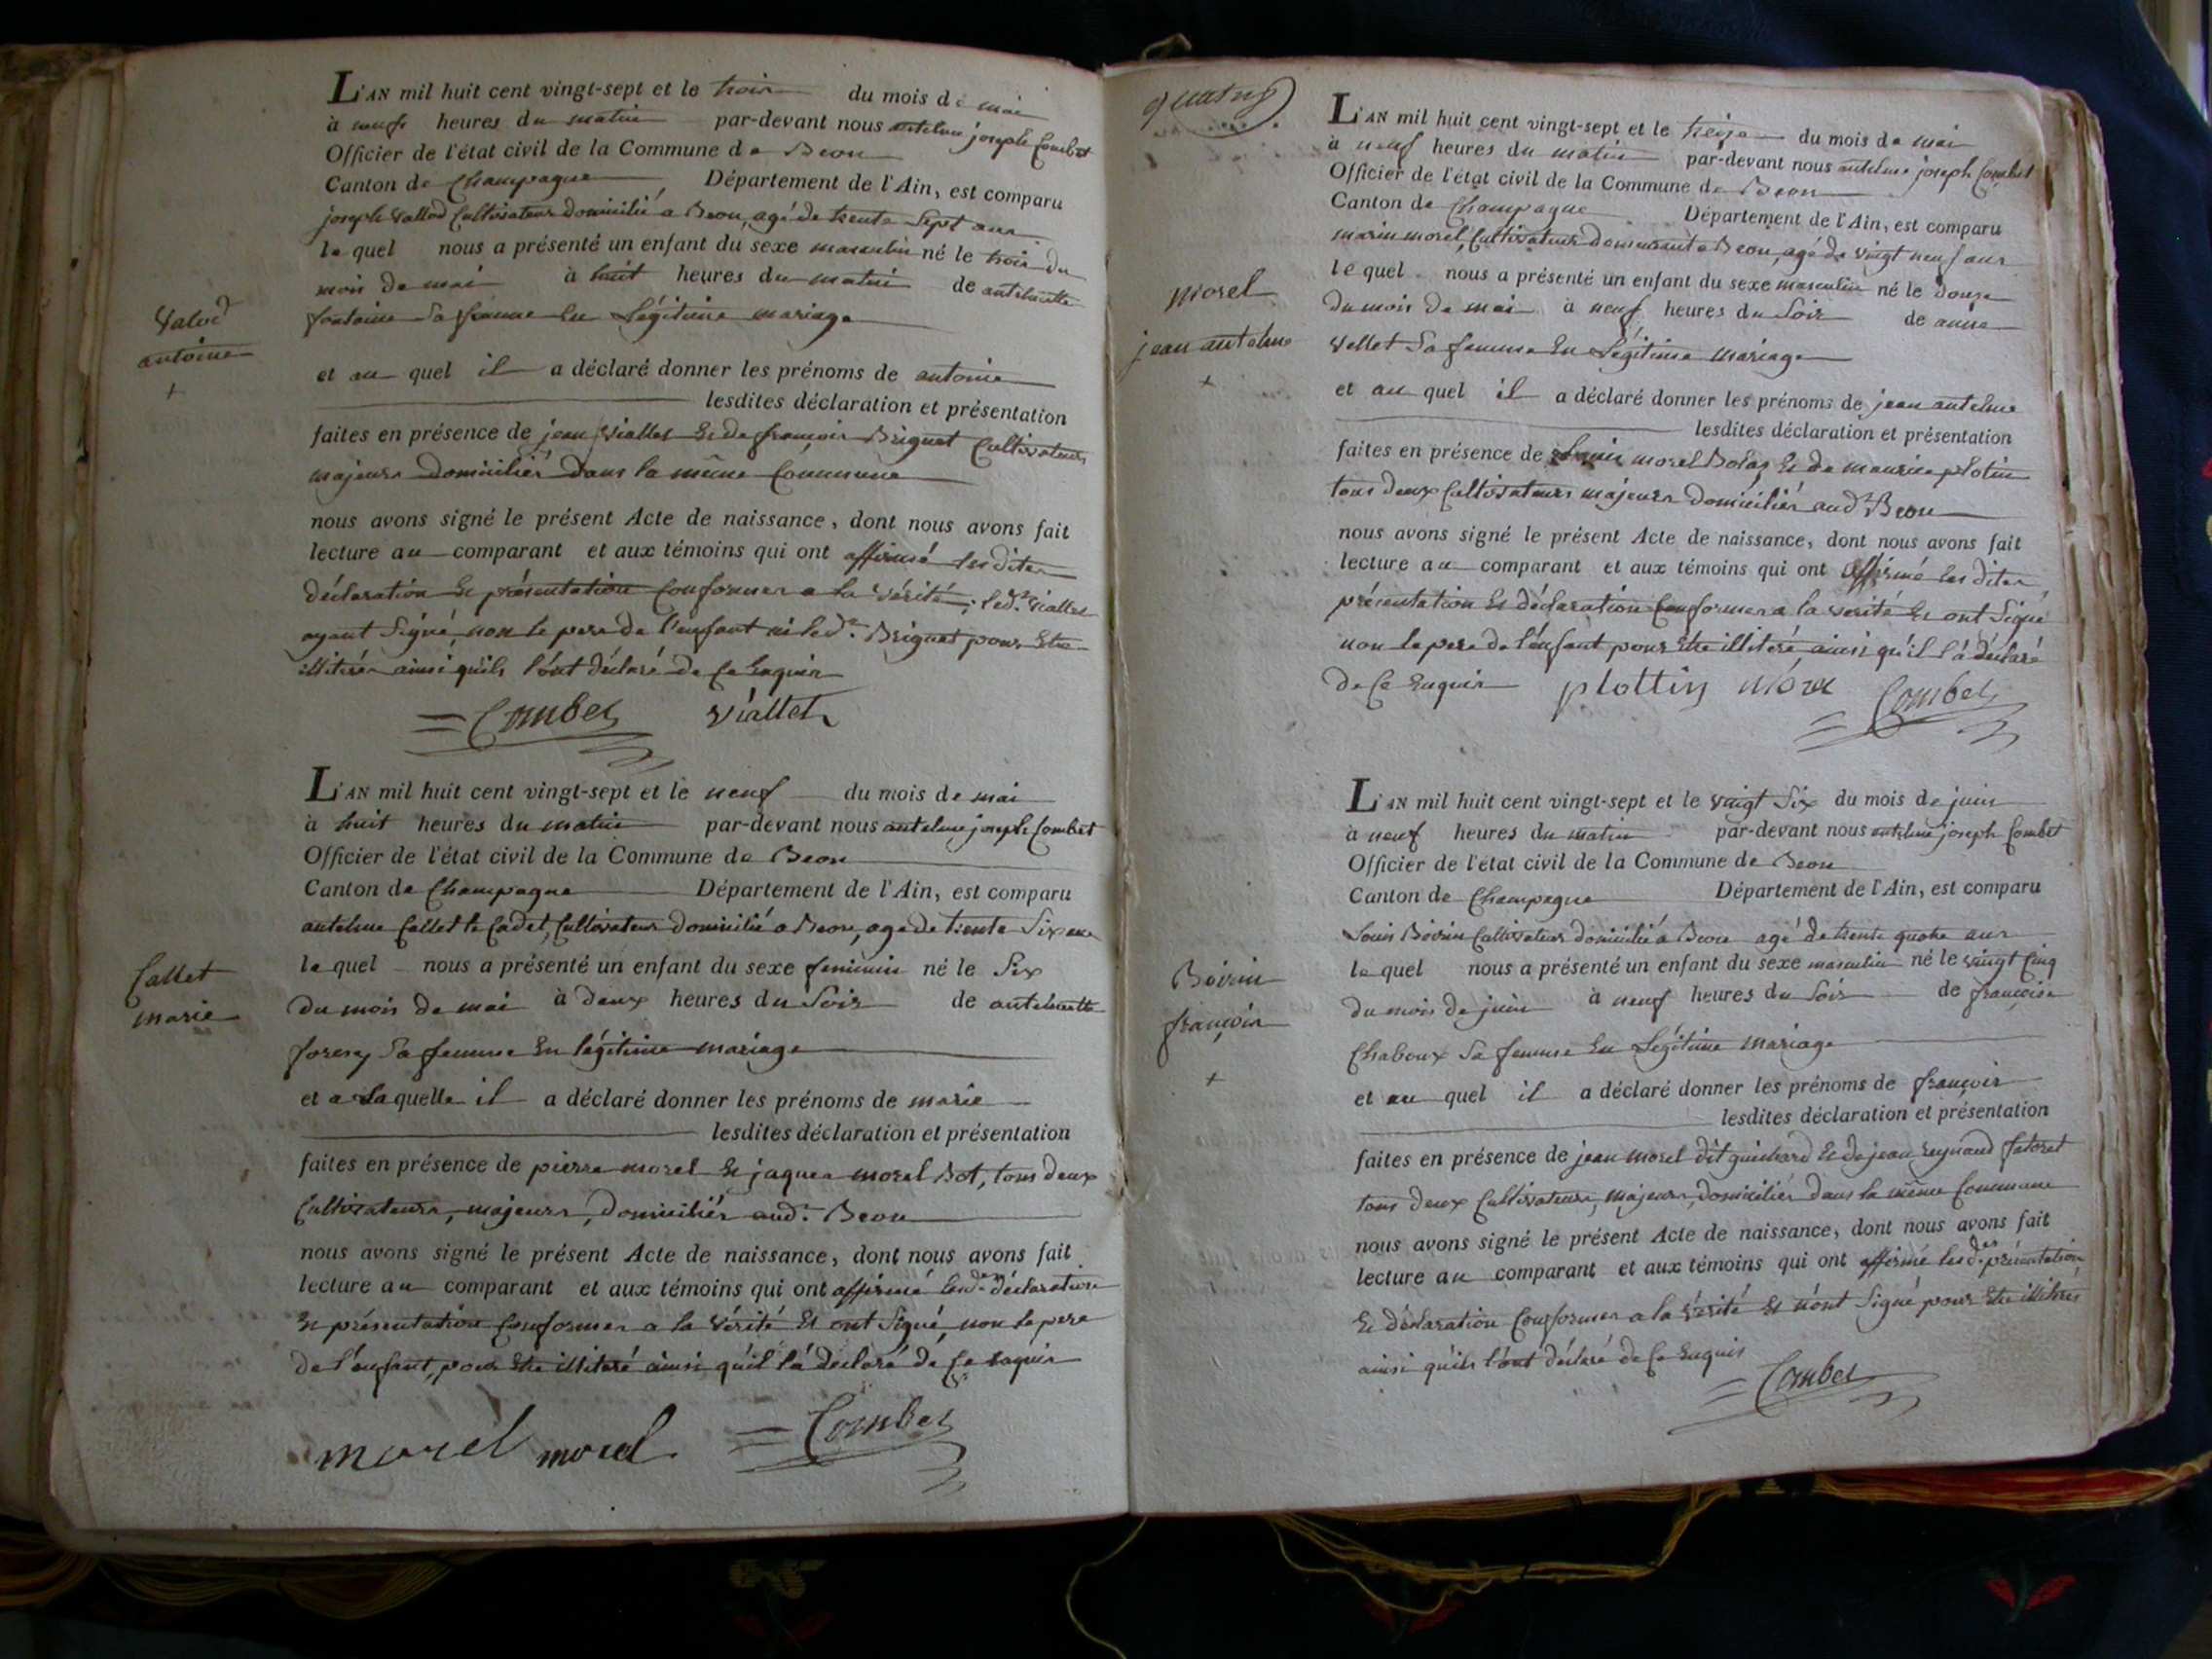 L'AN mil huit cent vingt-sept et le trois du mois de mai
à neuf heures du matin par-devant nous antelme joseph Combet
Officier de l'état civil de la Commune de Beon
Canton de Champagne Département de l'Ain, est comparu
joseph Vallod Cultivateur domicilié a Beon, agé de trente Sept ans
le quel nous a présenté un enfant du sexe masculin né le trois du
mois de mai à huit heures du matin de antelmette
fontaine Sa femme En Légitime mariage
Valod
antoine
+
et au quel il a déclaré donner les prénoms de antoine
lesdites déclaration et présentation
faites en présence de jean Viallet Et de françois Briguet Cultivateurs
majeurs domiciliés dans la même Commune
nous avons signé le présent Acte de naissance, dont nous avons fait
lecture au comparant et aux témoins qui ont affirmé les dites
déclaration Et présentation Conformes a la Vérité; led.t Viallet
ayant Signé, non le pere de l'enfant ni led.t Briguet pour Etre
illitérés ainsi qu'ils l'ont déclaré de Ce Enquis
Combet Viallet
L'AN mil huit cent vingt-sept et le neuf du mois de mai
à huit heures du matin par-devant nous antelme joseph Combet
Officier de l'état civil de la Commune de Beon
Canton de Champagne Département de l'Ain, est comparu
antelme Callet le Cadet, Cultivateur domicilié a Beon, agé de trente Six ans
le quel nous a présenté un enfant du sexe feminin né le Six
du mois de mai à deux heures du Soir de antelmette
Sa femme En légitime mariage
Callet
marie
et a Laquelle il a déclaré donner les prénoms de marie
lesdites déclaration et présentation
faites en présence de pierre morel Et jaques morel Bot, tous deux
Cultivateurs, majeurs, domiciliés aud.t Beon
nous avons signé le présent Acte de naissance, dont nous avons fait
lecture au comparant et aux témoins qui ont affirmé lesd.tes déclaration
Et présentation Conformes a la Vérité Et ont Signé, non le pere
de l'enfant, pour Etre illitéré ainsi qu'il l'a déclaré de Ce Enquis
morel morel Combet
quatre
L'AN mil huit cent vingt-sept et le treize du mois de mai
à neuf heures du matin par-devant nous antelme joseph Combet
Officier de l'état civil de la Commune de Beon
Canton de Champagne Département de l'Ain, est comparu
marin morel, Cultivateur demeurant a Beon, agé de vingt neuf ans
le quel nous a présenté un enfant du sexe masculin né le douze
du mois de mai à neuf heures du Soir de anne
Vellet Sa femme En Légitime mariage
morel
jean antelme
+
et au quel il a déclaré donner les prénoms de jean antelme
lesdites déclaration et présentation
faites en présence de morel Bolaz Et de maurice plotin
tous deux Cultivateurs majeurs domiciliés aud.t Beon
nous avons signé le présent Acte de naissance, dont nous avons fait
lecture au comparant et aux témoins qui ont affirmé les dites
présentation Et déclaration Conformes a la verité Et ont Signé
non le pere de l'enfant pour Etre illitéré, ainsi qu'il l'a déclaré
de Ce Enquis plottin morel Combet
L'AN mil huit cent vingt-sept et le vingt Six du mois de juin
à neuf heures du matin par-devant nous antelme joseph Combet
Officier de l'état civil de la Commune de Beon
Canton de Champagne Département de l'Ain, est comparu
Louis Boivin Cultivateur domicilié a Beon agé de trente quatre ans
le quel nous a présenté un enfant du sexe masculin né le vingt Cinq
du mois de juin à neuf heures du Soir de françoise
Chaboux Sa femme En Légitime mariage
Boivin
françois
+
et au quel il a déclaré donner les prénoms de françois
lesdites déclaration et présentation
faites en présence de jean morel dit guichard Et de jean reynaud
tous deux Cultivateurs, majeurs, domiciliés dans la même Commune
nous avons signé le présent Acte de naissance, dont nous avons fait
lecture au comparant et aux témoins qui ont affirmé lesd.es présentation
Et déclaration Conformes a la Vérité Et n'ont Signé pour Etre illitérés
ainsi qu'ils l'ont déclaré de Ce Enquis
Combet